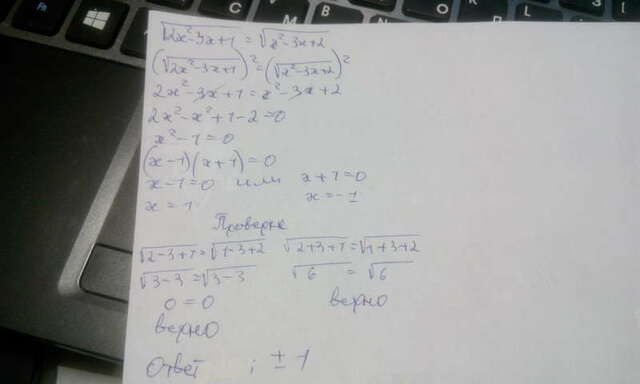 √2x²-3x+1 = √x²-3x+2
(√2x²-3x+1)² = (√x²-3x+2)²
2x²-3x+1 = x²-3x+2
2x²-x²+1-2=0
x²-1=0
(x-1)(x+1)=0
x-1=0 или x+1=0
x=1 x=-1
Проверка
√2-3+1=√1-3+2 √2+3+1=√1+3+2
√3-3=√3-3 √6 = √6
0=0 верно
верно
Ответ ; ±1